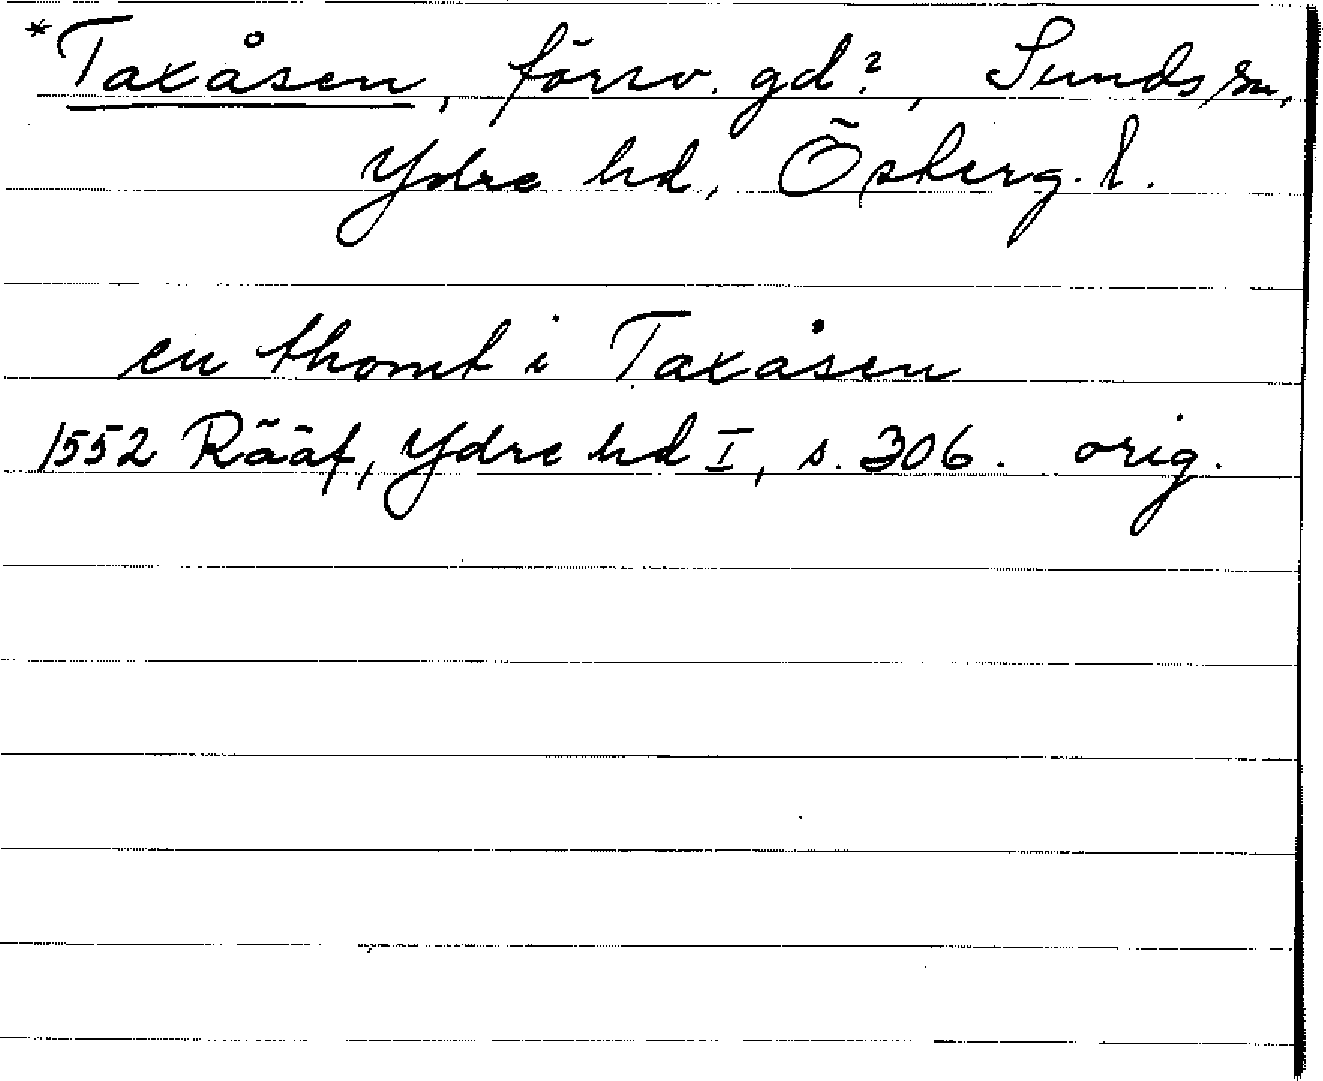 *Taxåsen, försv. gd?, Sunds sn,
Ydre hd, Österg. l.
en thomt i Taxåsen
1552 Rääf, Ydre hd I, s. 306. orig.